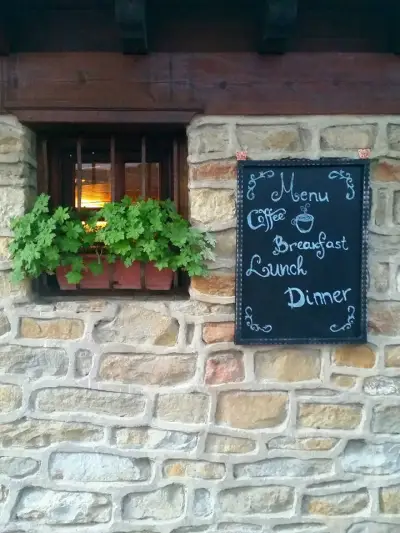 Menu
Coffee
Breakfast
Lunch
Dinner